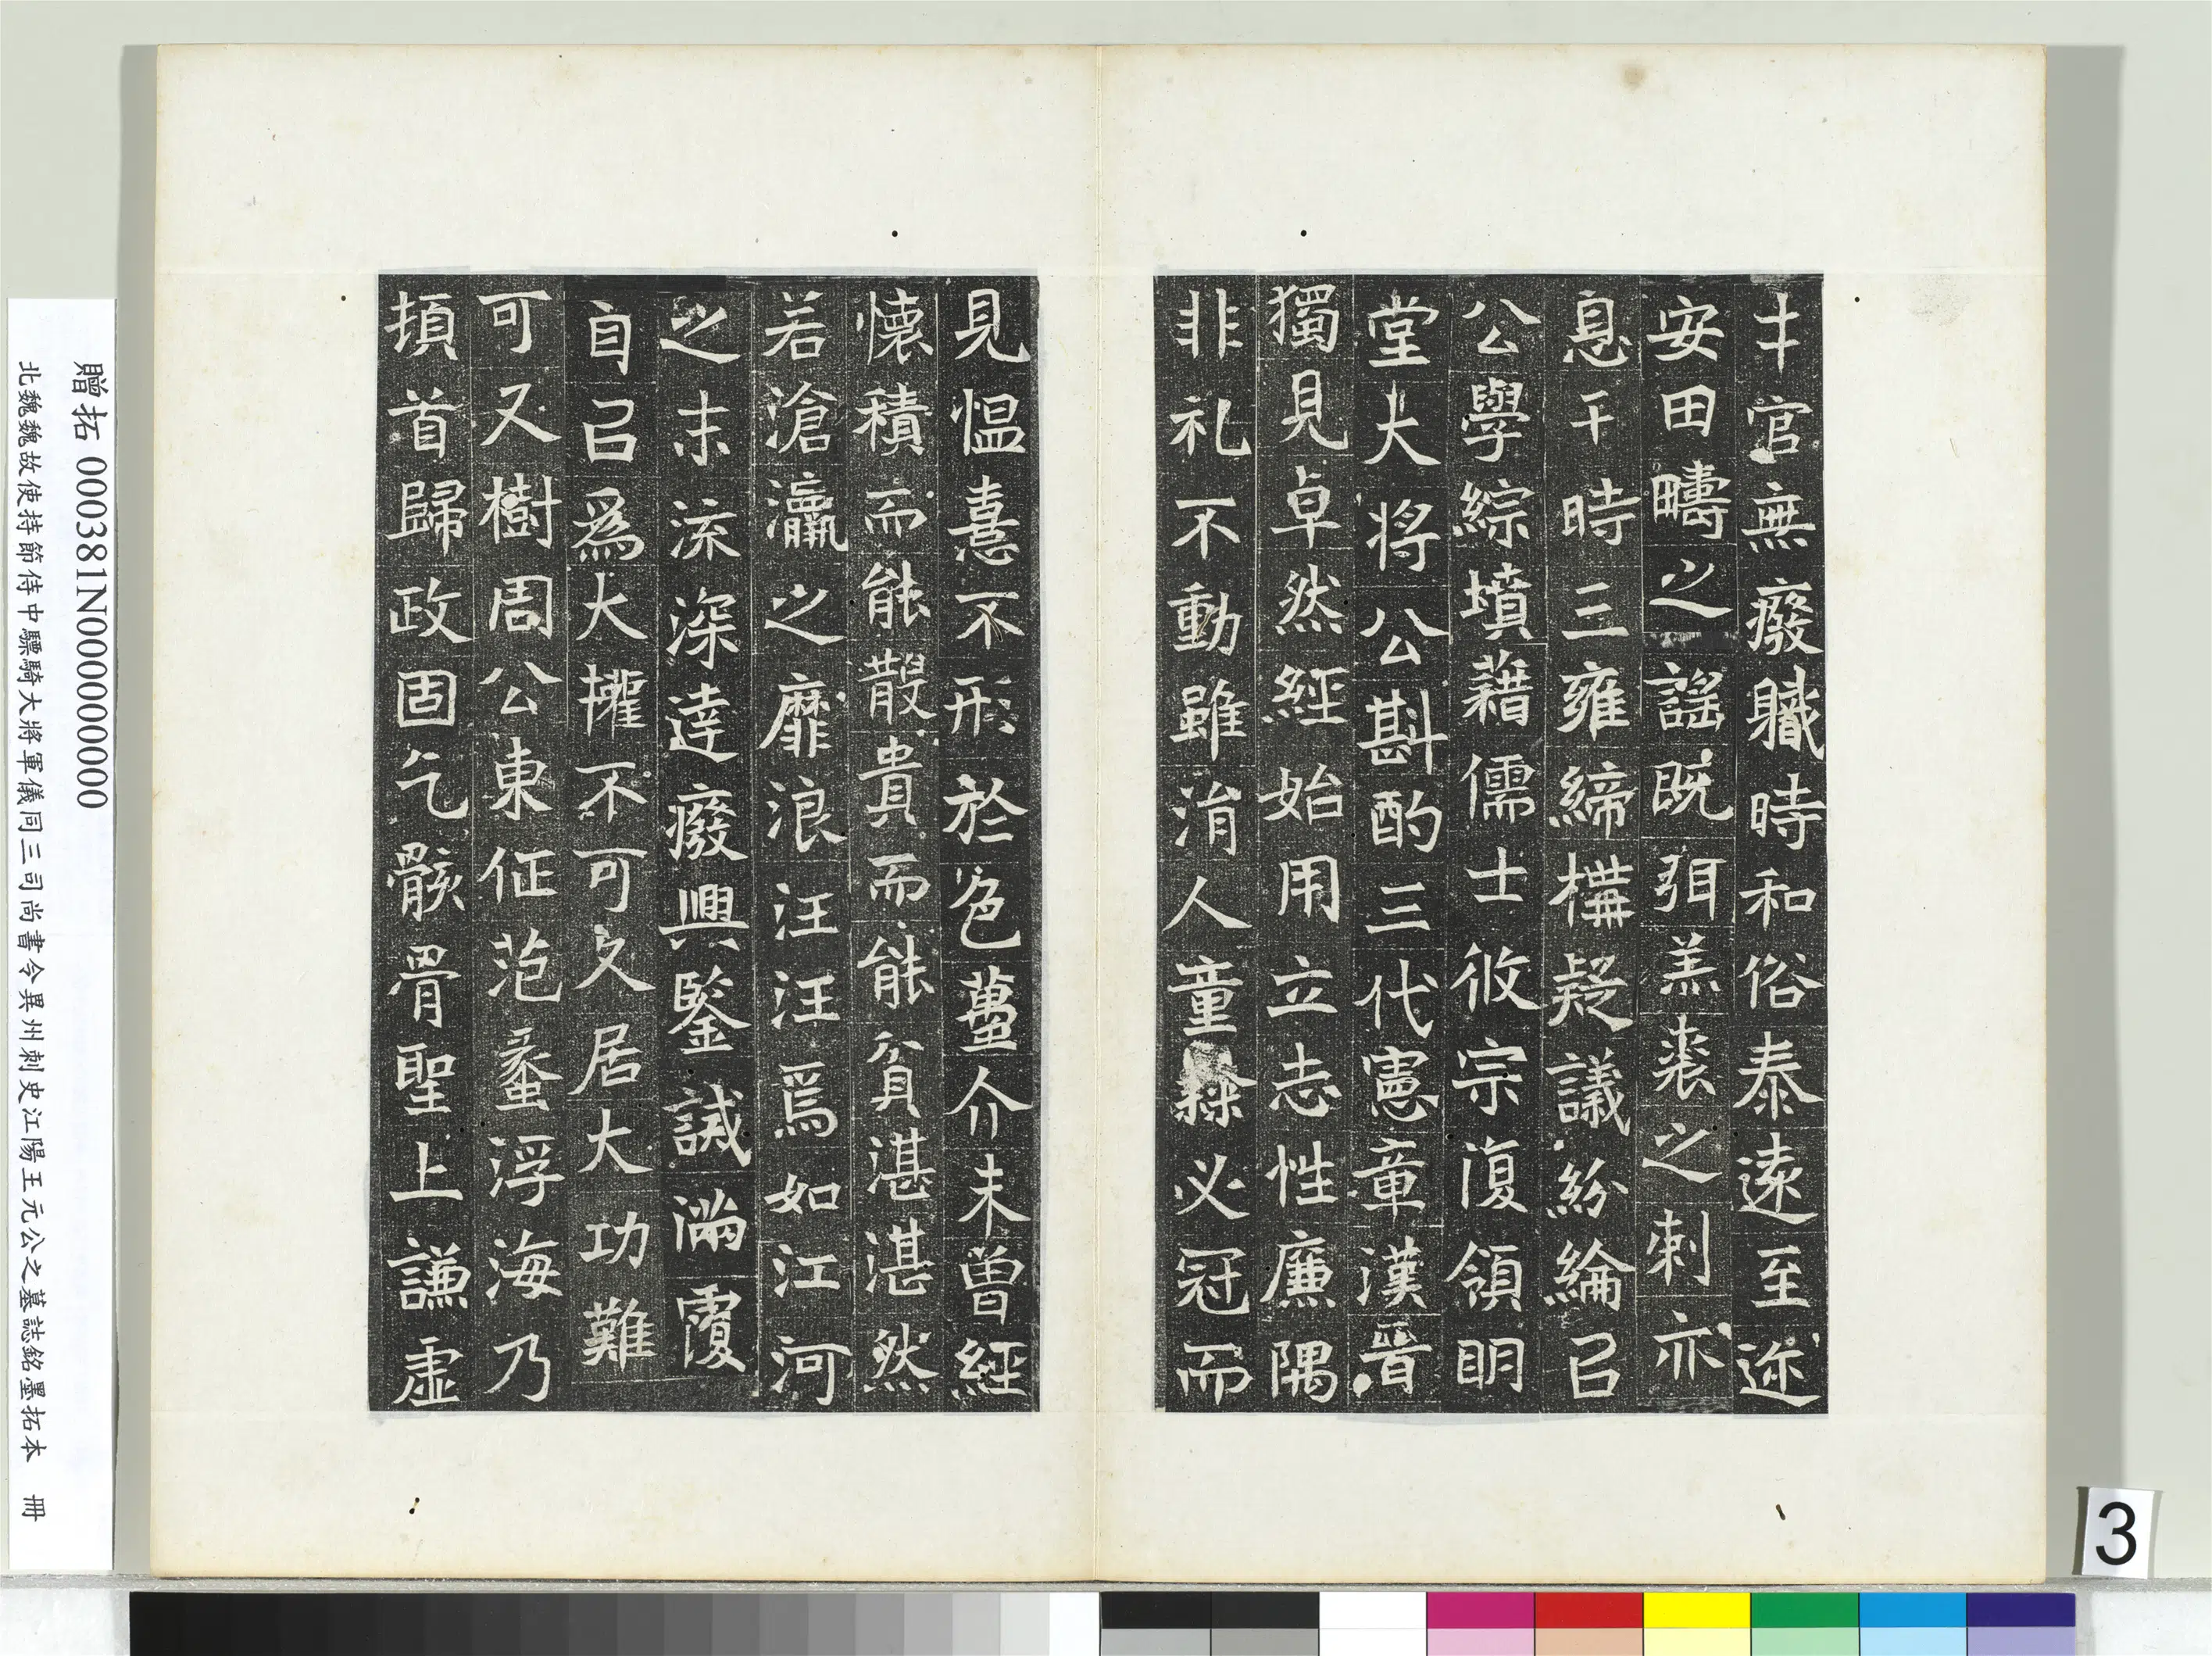 才官無癈職時和俗泰遠至迩
安田疇之謡既弭羔裘之刺亦
息于時三雍締構疑議紛綸㠯
公學綜墳藉儒士攸宗復領明
堂大将公斟酌三代憲章漢晉
獨見卓然經始用立志性廉隅
非礼不動雖淯人童隸必冠而
見愠憙不形於色蠆介未曾經
懷積而能散貴而能貧湛湛然
若滄瀛之靡浪汪汪焉如江河
之末流深達癈興鑒誡滿覆
自㠯爲大權不可久居大功難
可又樹周公東征范蠡浮海乃
頓首歸政固乞骸骨聖上謙虛
贈拓 000381N000000000
北魏魏故使持節侍中驃騎大將軍儀同三司尚書令異州刺史江陽王元公之墓誌銘墨拓本 冊
3